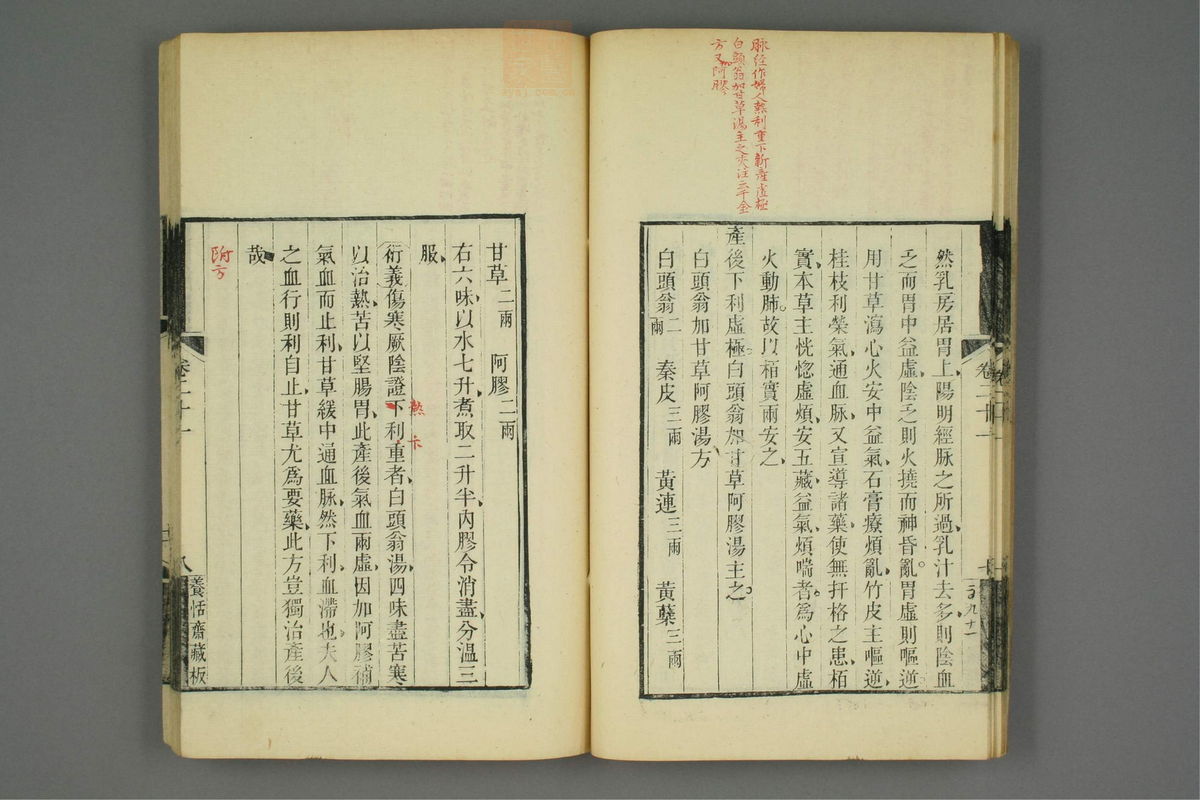 脉经作婦人熱利重下新產虛極
白頭翁加甘草湯主之夾注云千金
方又加阿膠
然乳房居胃上陽明經脉之所過乳汁去多則陰血
乏而胃中益虛陰乏則火撓而神昏亂胃虛則嘔逆
用甘草瀉心火安中益氣石膏療煩亂竹皮主嘔逆
桂枝利榮氣通血脉又宣導諸藥使無扞格之患栢
實本草主恍惚虛煩安五藏益氣煩喘者為心中虛
火動肺故以栢實兩安之
產後下利虛極白頭翁加甘草阿膠湯主之
白頭翁加甘草阿膠湯方
白頭翁二兩 秦皮三兩 黃連三兩 黃蘗三兩
卷二十一
甘草二兩 阿膠二兩
右六味以水七升煮取二升半內膠令消盡分溫三
服
衍義傷寒厥陰證下利重者白頭翁湯四味盡苦寒
熱
以治熱苦以堅腸胃此產後氣血兩虛因加阿膠補
氣血而止利甘草緩中通血脉然下利血滯也夫人
之血行則利自止甘草尤為要藥此方豈獨治產後
哉
附方
卷二十一
八
養恬齋藏板